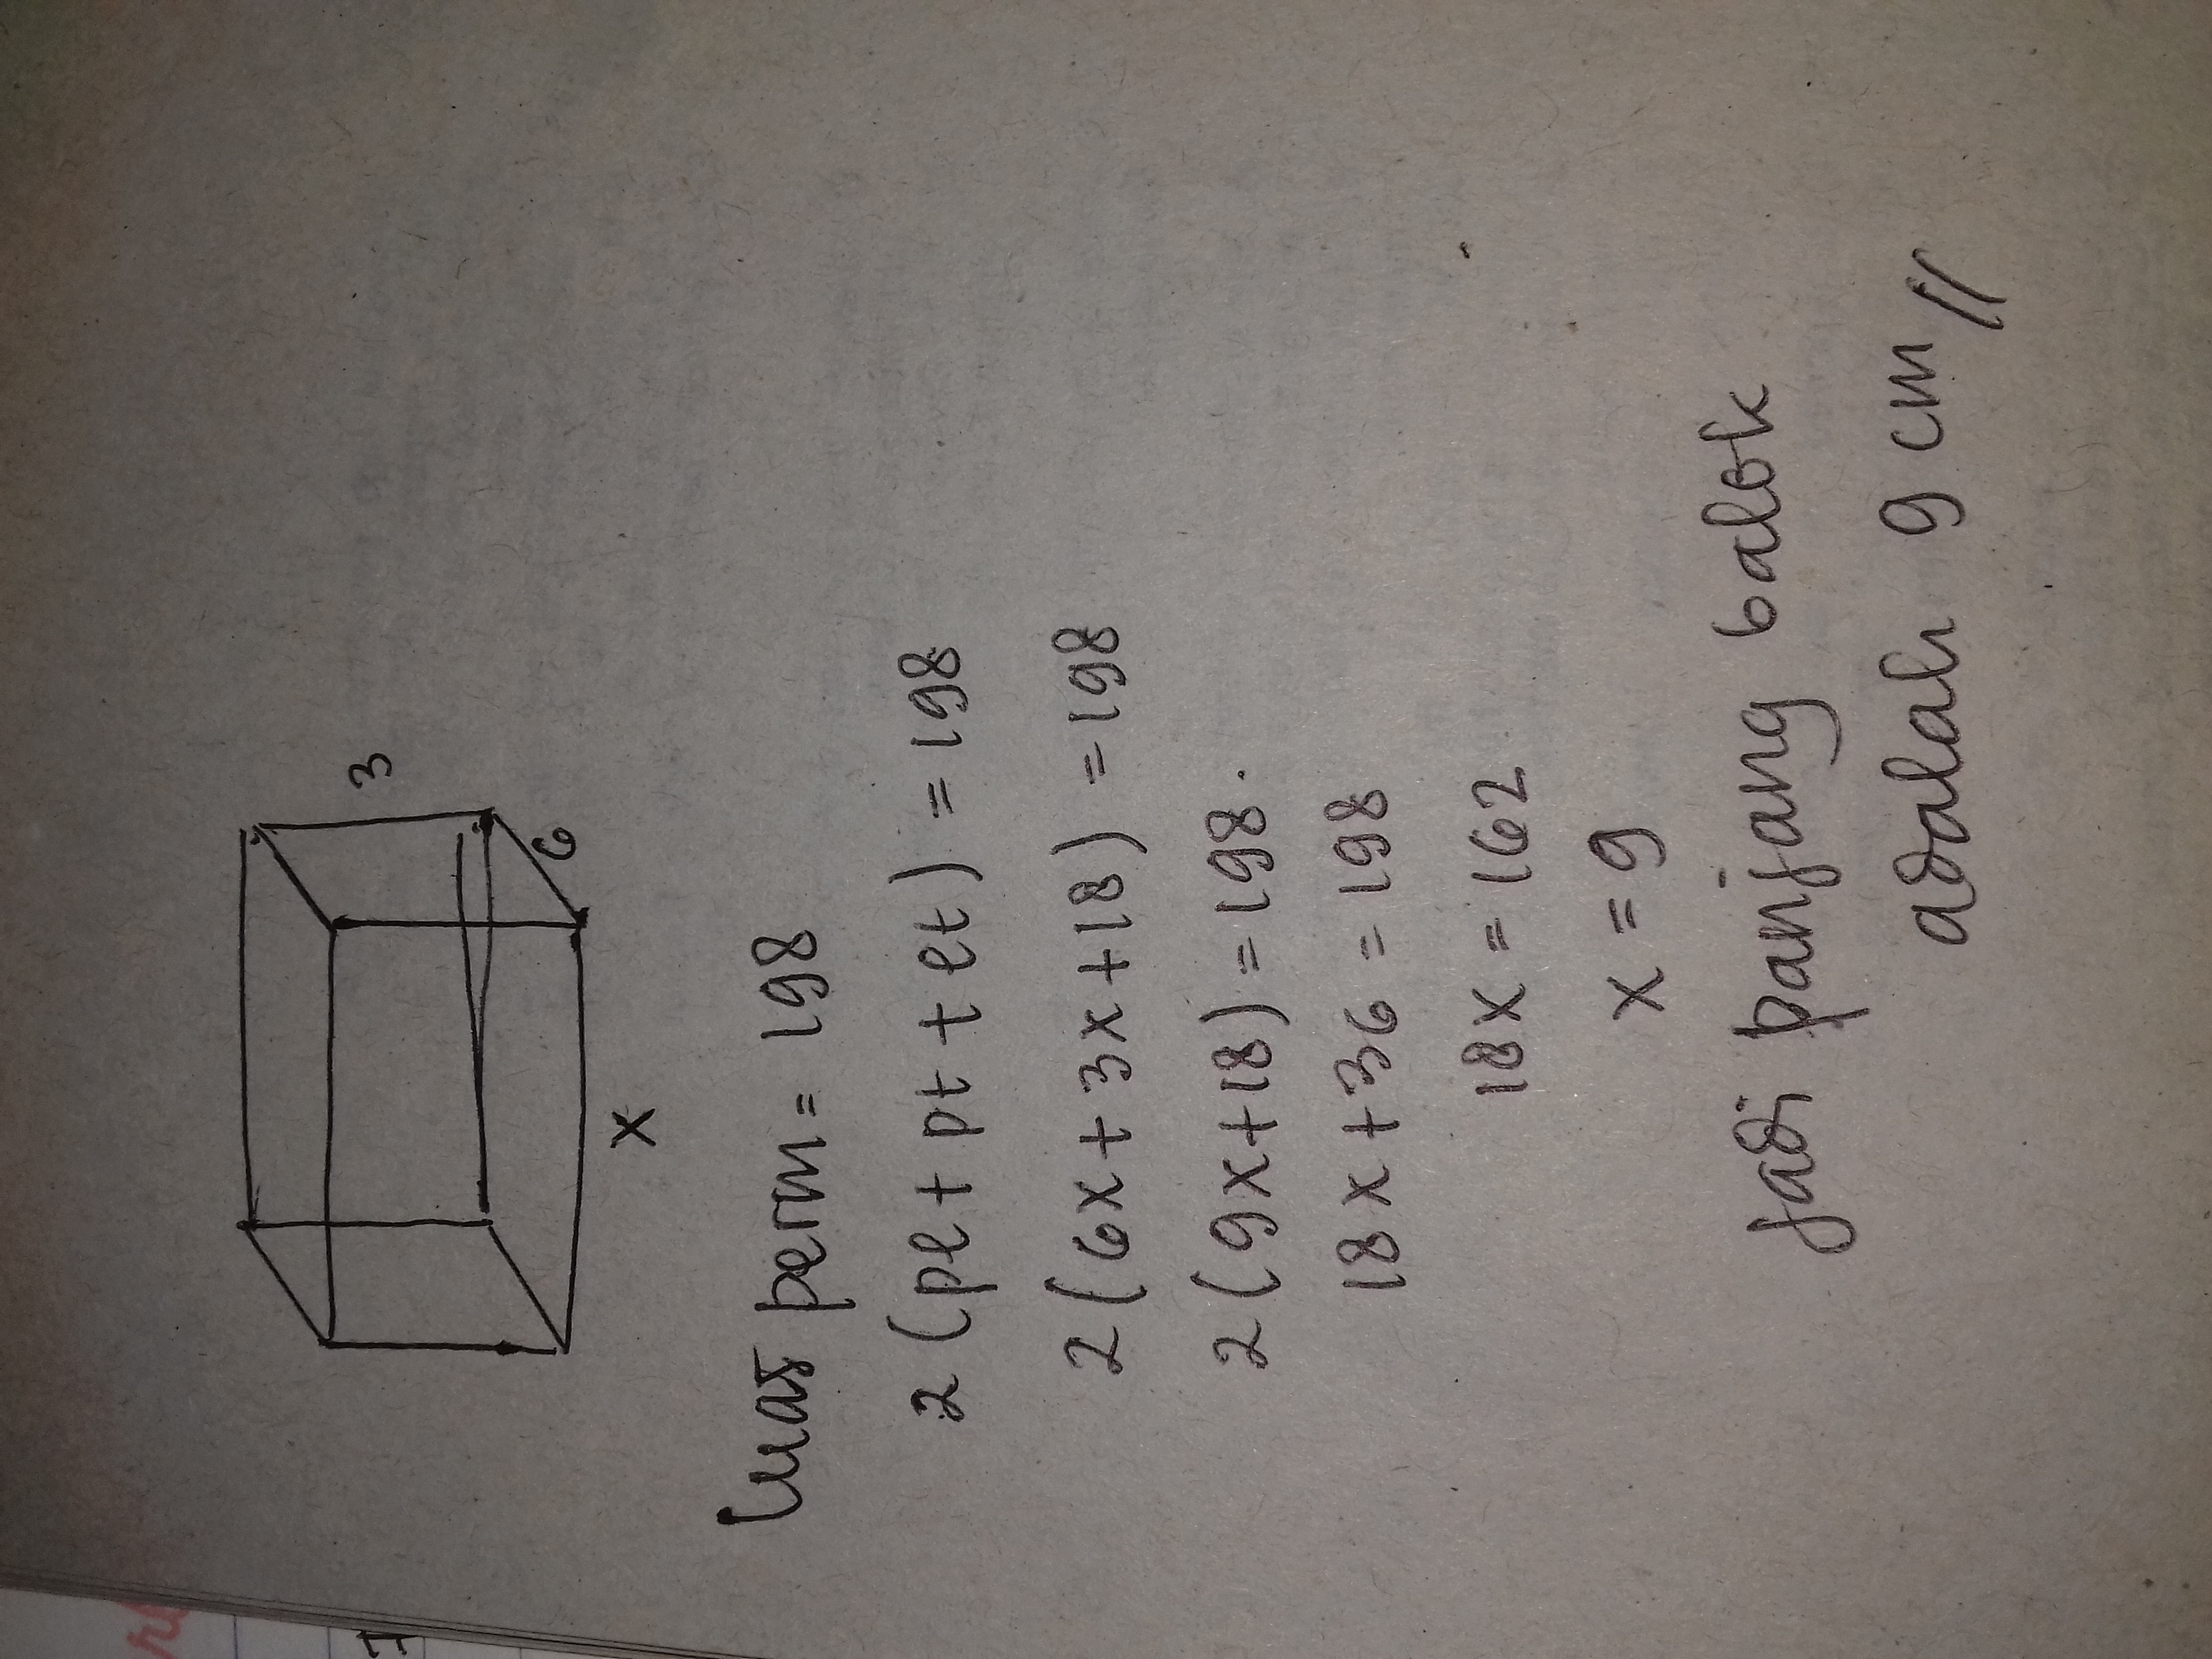 3
6
x
Luas perm = 198
2(pl + pt + lt) = 198
2(6x + 3x + 18) = 198
2(9x + 18) = 198.
18x + 36 = 198
18x = 162
x = 9
Jadi panjang balok
adalah 9 cm //